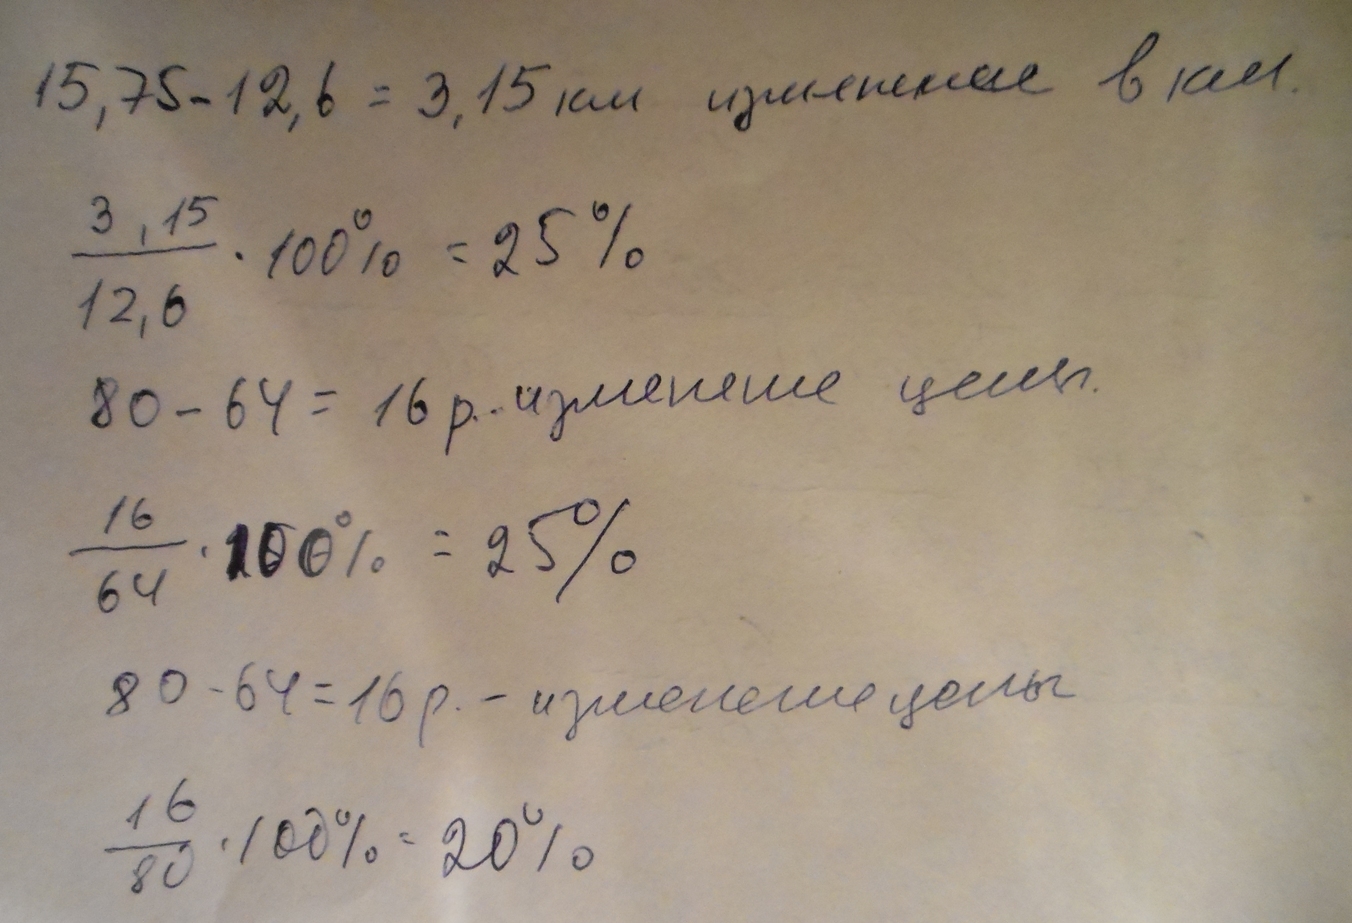 15,75-12,6 = 3,15 км изменение в км.
3,15/12,6 · 100% = 25%
80-64 = 16 р. - изменение цены.
16/64 · 100% = 25%
80-64=16 р. - изменение цены
16/80 · 100% = 20%